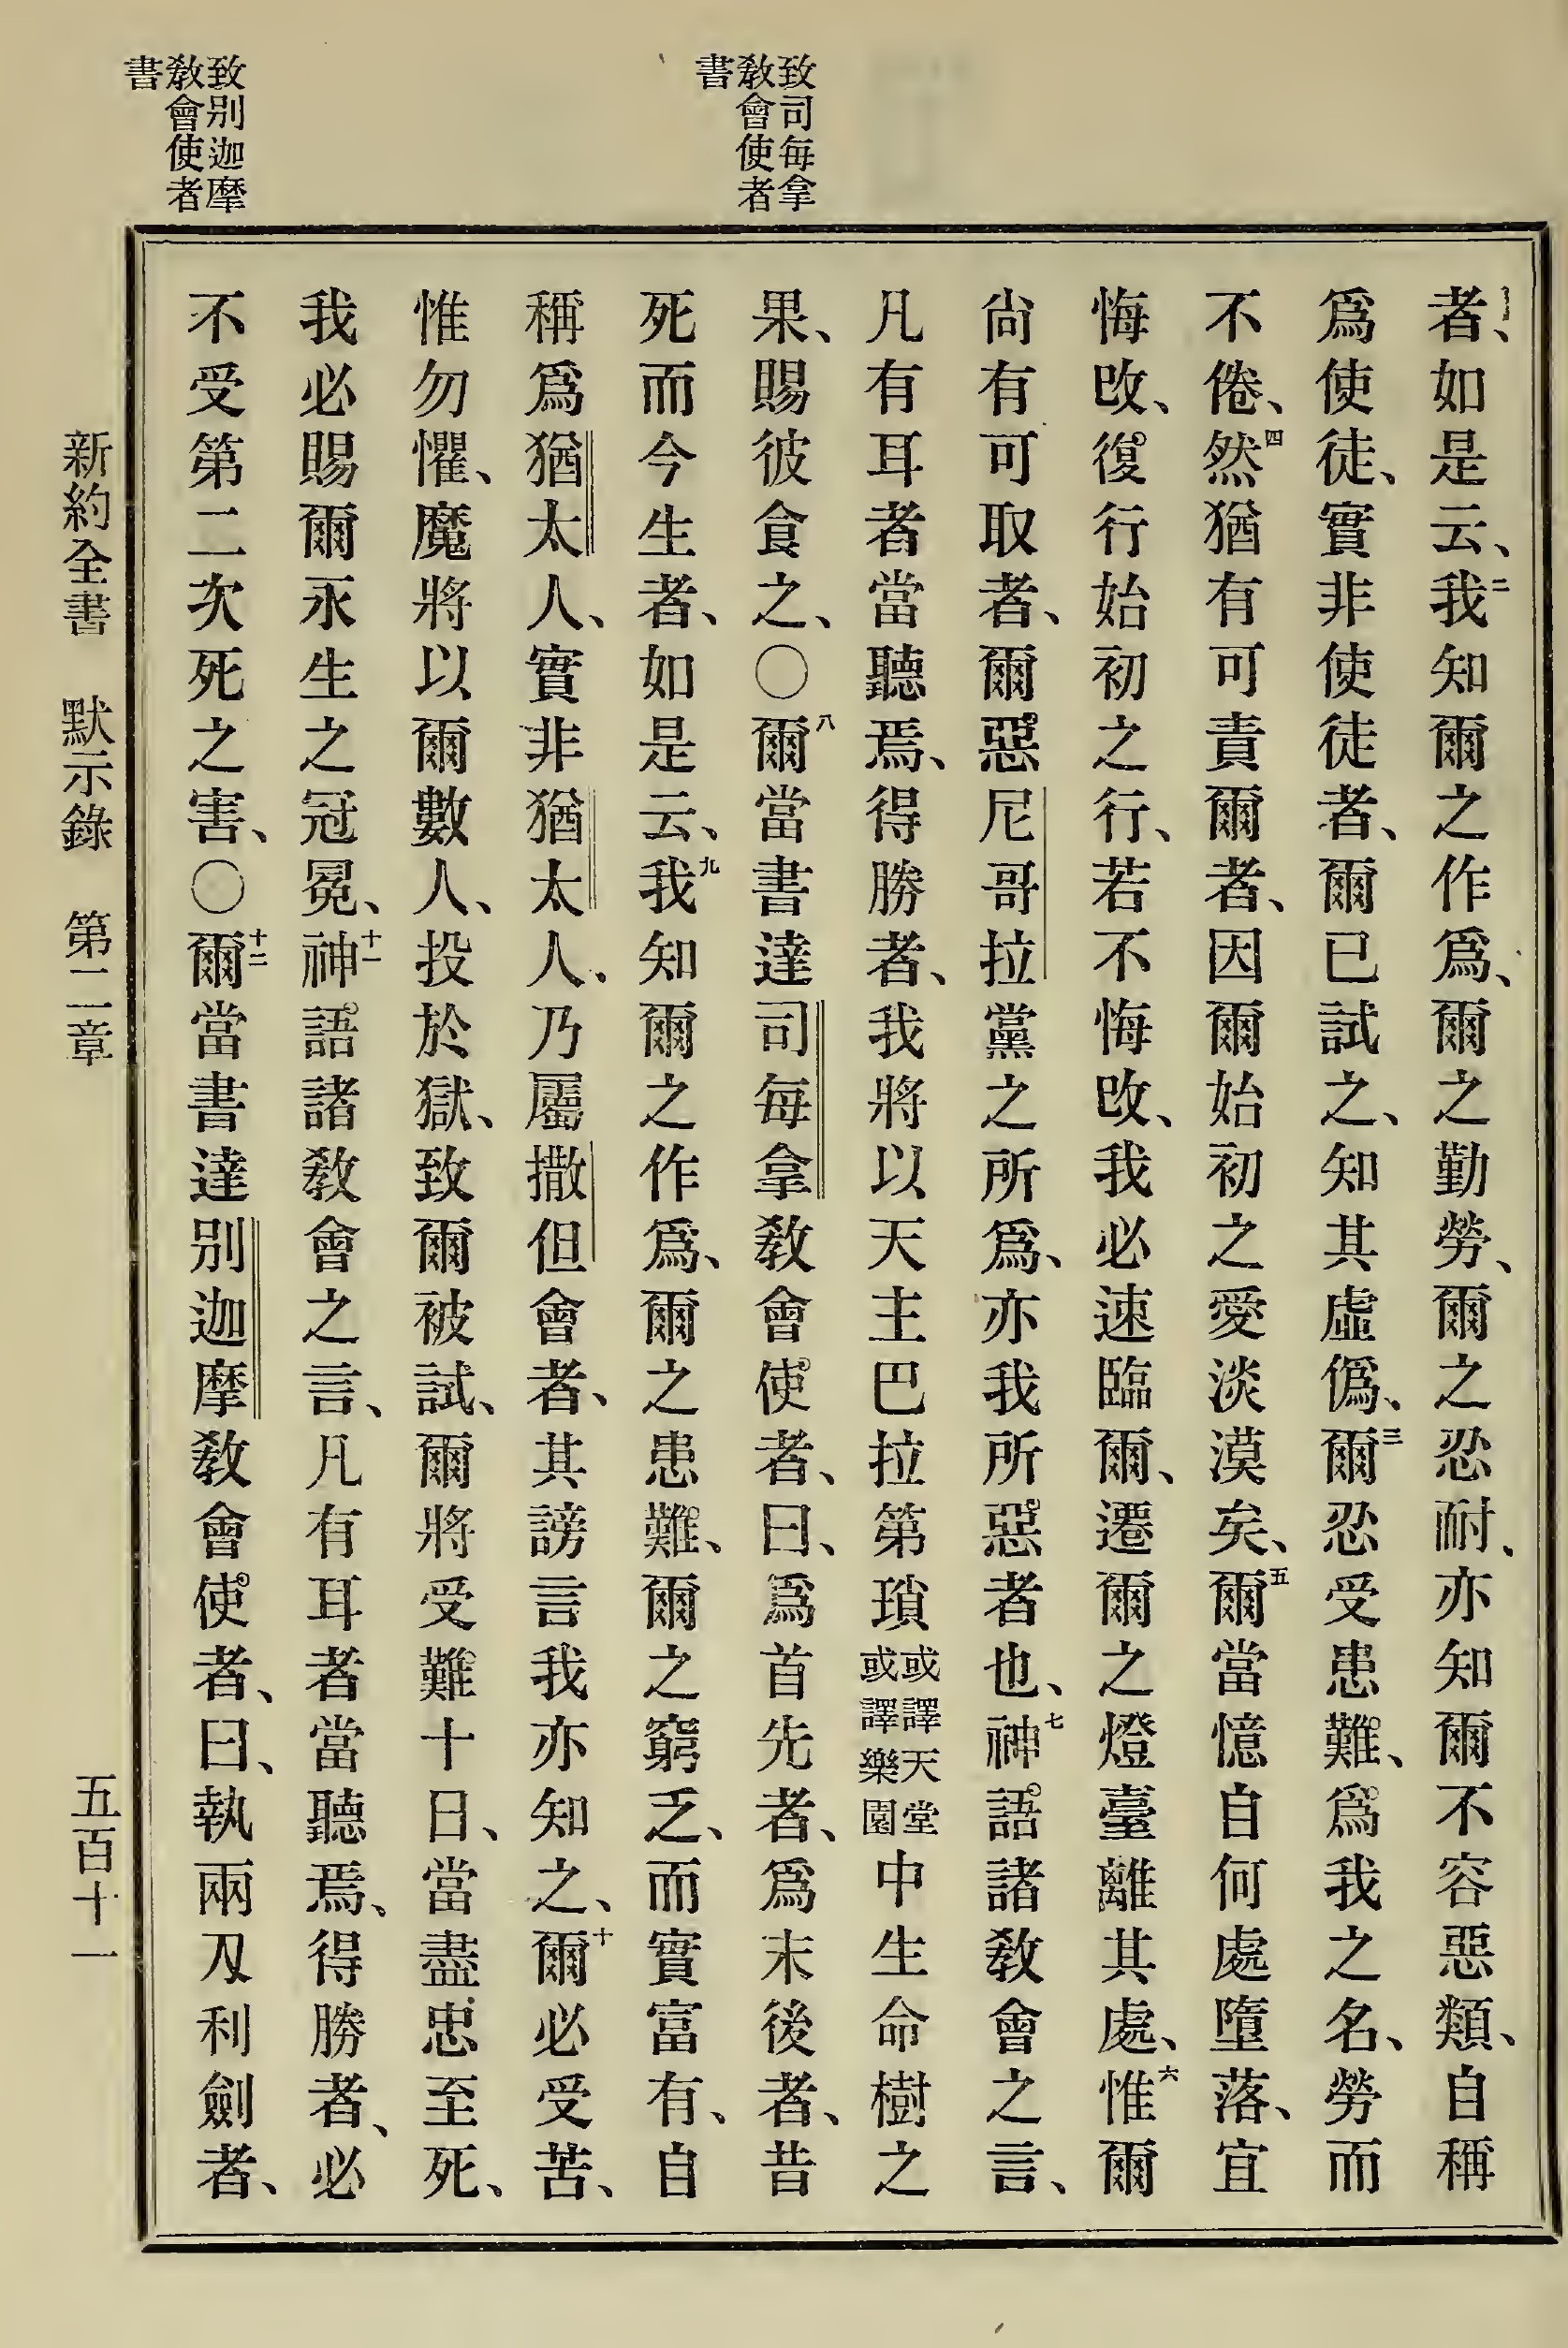 致司每拿
敎會使者
書
致别迦摩
敎會使者
書
者、如是云、二我知爾之作爲、爾之勤勞、爾之忍耐、亦知爾不容惡類、自稱
爲使徒、實非使徒者、爾已試之、知其虛僞、三爾忍受患難、爲我之名、勞而
不倦、四然猶有可責爾者、因爾始初之愛淡漠矣、五爾當憶自何處墮落、宜
悔改、復行始初之行、若不悔改、我必速臨爾、遷爾之燈臺離其處、六惟爾
尙有可取者、爾惡尼哥拉黨之所爲、亦我所惡者也、七神語諸敎會之言、
凡有耳者當聽焉、得勝者、我將以天主巴拉第瑣或譯天堂或譯樂園中生命樹之
果、賜彼食之、〇八爾當書達司每拿敎會使者、曰、爲首先者、爲末後者、昔
死而今生者、如是云、九我知爾之作爲、爾之患難、爾之窮乏、而實富有、自
稱爲猶太人、實非猶太人、乃屬撒但會者、其謗言我亦知之、十爾必受苦、
惟勿懼、魔將以爾數人、投於獄、致爾被試、爾將受難十日、當盡忠至死、
我必賜爾永生之冠冕、十一神語諸敎會之言、凡有耳者當聽焉、得勝者、必
不受第二次死之害、〇十二爾當書達别迦摩敎會使者、曰、執兩刄利劍者、
新約全書 默示錄 第二章 五百十一